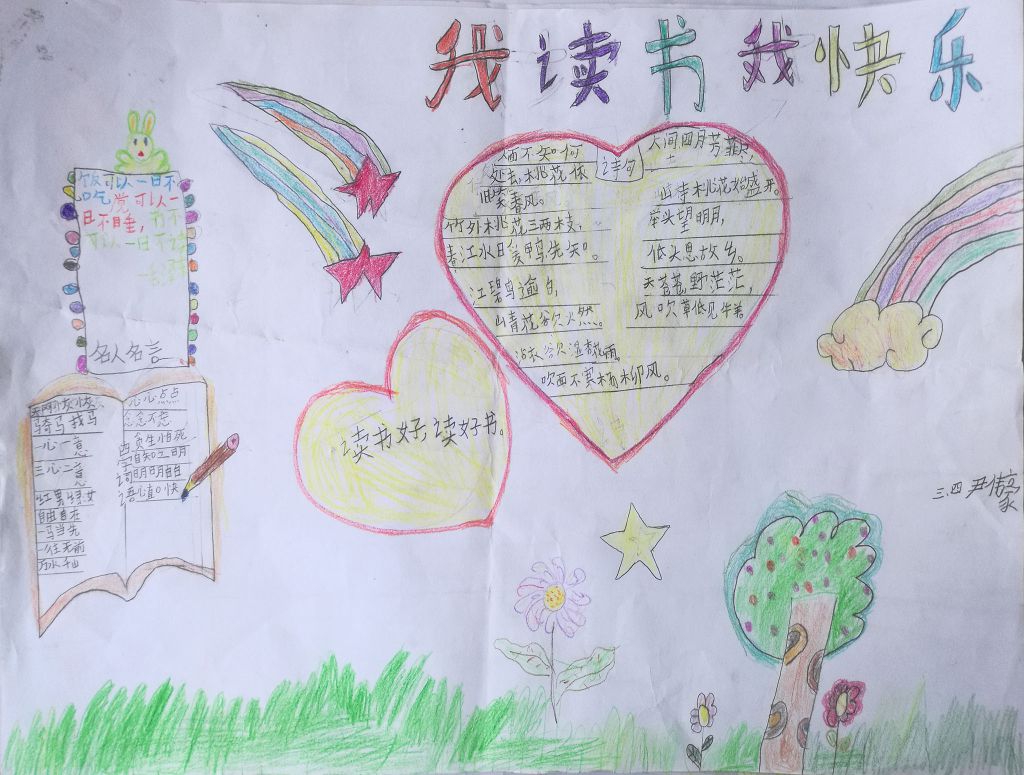 我读书我快乐
饭可以一日不
吃,觉可以一
日不睡,书不
可以一日不读
名人名言
诗句
面不知何
处去,桃花依
旧笑春风。
竹外桃花三两枝,
春江水日爰鸭先知。
江碧鸟逾白,
山青花欲火燃。
沾衣欲湿杏花雨,
吹面不寒杨柳风。
人间四月芳菲尽,
山寺桃花始盛开。
举头望明月,
低头思故乡。
天苍苍,野茫茫,
风吹草低见牛羊
读书好,读好书。
骑马找马
一心一意
三心二意
自由自在
一马当先
一往无前
万水千山
心心点点
念念不忘
贪生怕死
自知之明
明明白白
心直口快
词语
三.四 尹伟豪